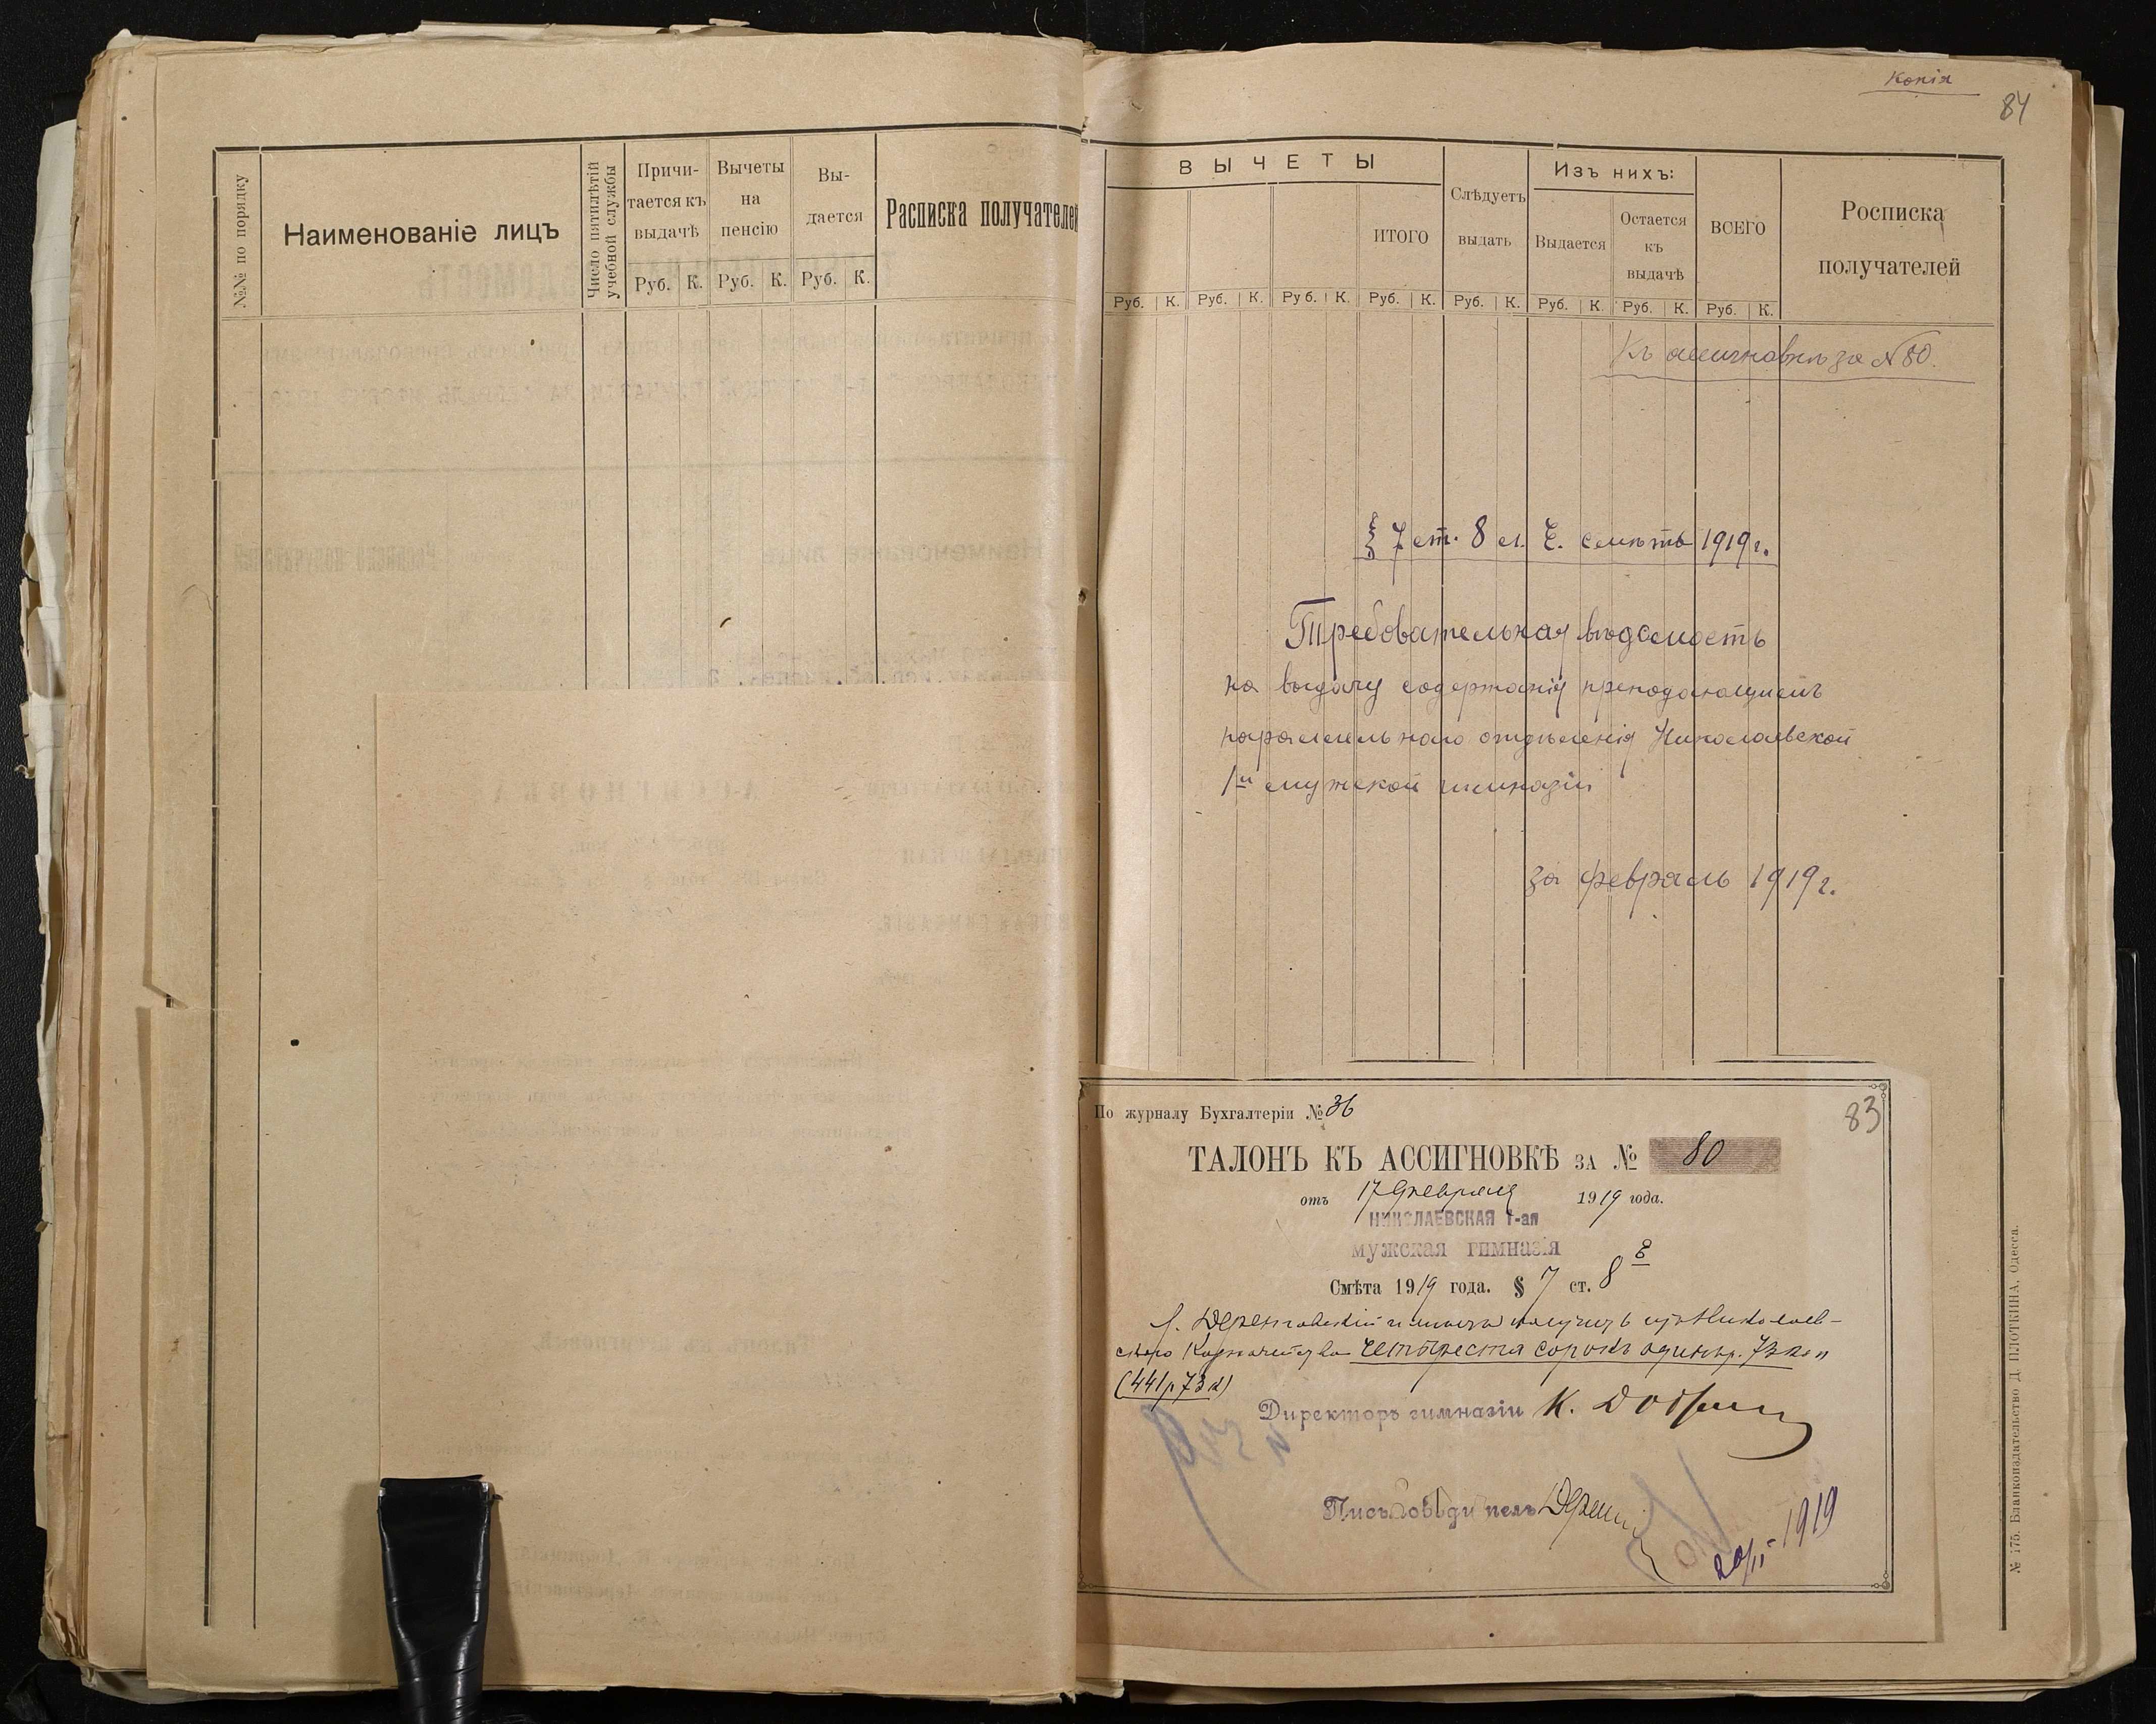 №№ по порядку
Наименованіе лицъ
Число пятилѣтій
учебной службы
Причи-
тается къ
выдачѣ
Руб. К.
Вычеты
на
пенсію
Руб. К.
Вы-
дается
Руб. К.
Расписка получателей
Копія
84
ВЫЧЕТЫ
ИТОГО
Слѣдуетъ
выдать
Изъ нихъ:
Выдается
Остается
къ
выдачѣ
ВСЕГО
Росписка
получателей
Руб. К. Руб. К. Руб. К. Руб. К. Руб. К. Руб. К. Руб. К. Руб. К.
Къ ассигновкѣ за № 80.
§ 7 ст. 8 л. Е. смѣты 1919 г.
Требовательная вѣдомость
на выдачу содержанія преподающимъ
параллельнаго отдѣленія Николаевской
1й мужской гимназіи
за февраль 1919 г.
По журналу Бухгалтеріи № 36
83
ТАЛОНЪ КЪ АССИГНОВКѢ ЗА № 80
отъ 17 Февраля 1919 года.
НИКОЛАЕВСКАЯ 1-ая
мужская гимназія
Смѣта 1919 года. § 7 ст. 8 Е
получить изъ Николаев-
скаго Казначейства четыреста сорокъ одинъ р. 73 коп
(441 р 73 к)
Директоръ гимназіи К.
Письмоводитель
20/II 1919
№ 175. Бланкоиздательство Д. ПЛОТКИНА, Одесса.